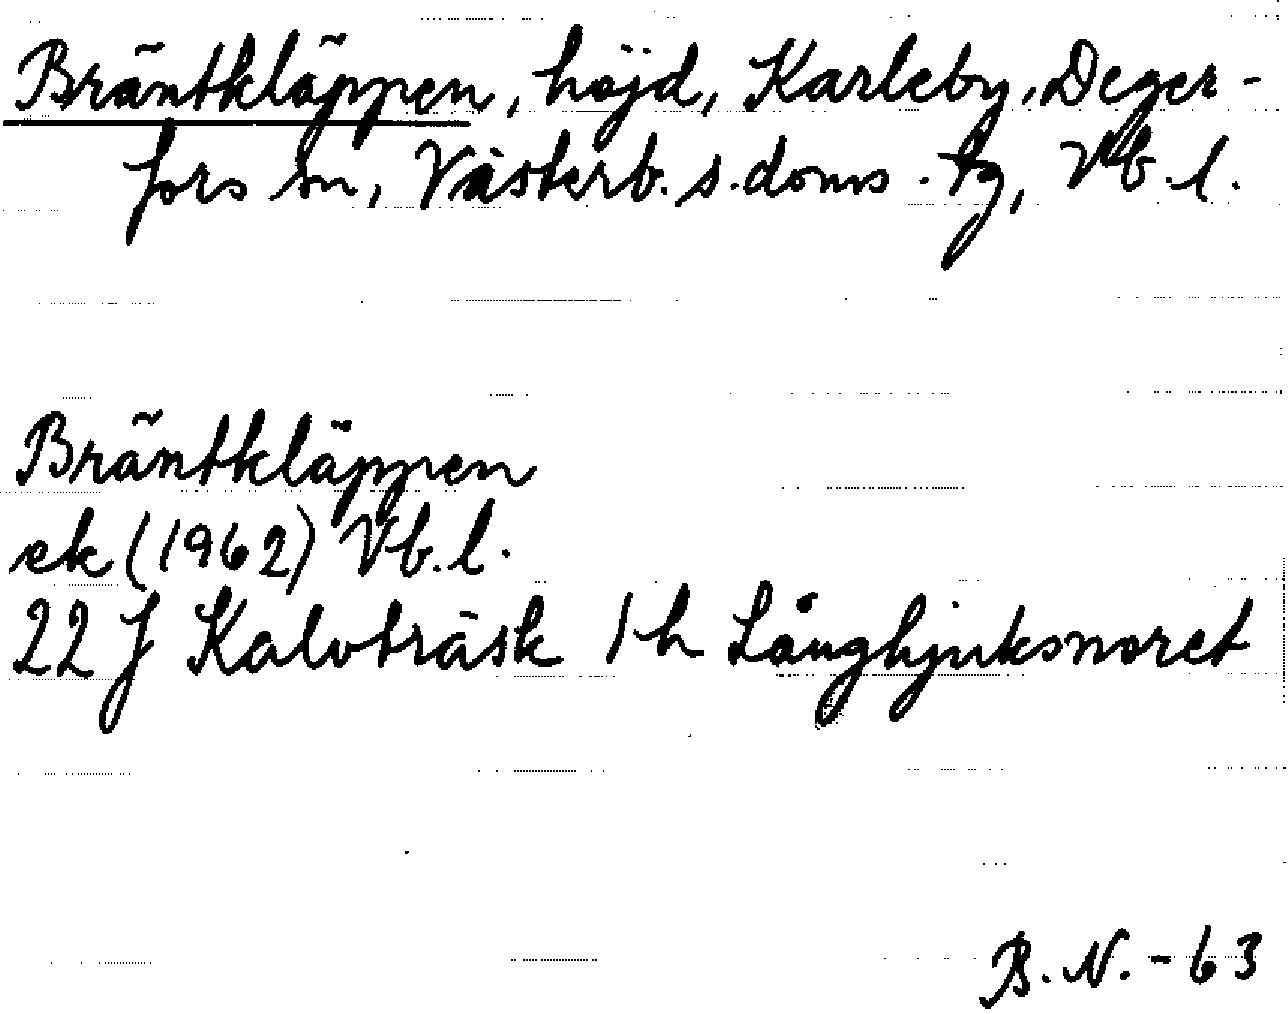 Bräntkläppen, höjd, Karleby, Deger-
fors sn, Västerb. s. doms. tg, Vb. l.
Bräntkläppen
ek (1962) Vb. l.
22 J Kalvträsk 1 h Långhjuksnoret
B. N. - 63